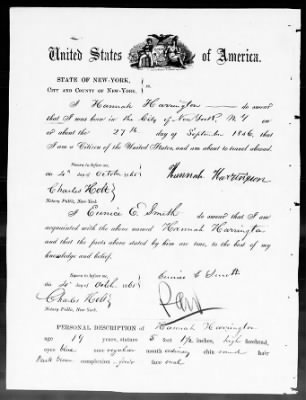 United States of America.
STATE OF NEW-YORK,
CITY AND COUNTY OF NEW-YORK, } ss.
I Hannah Harrington do swear
that I was born in the City of New York N.Y on
or about the 27th day of September 1846, that
I am a Citizen of the United States, and am about to travel abroad.
Sworn to before me,
this 4th day of October 186
Hannah Harrington
Charles
Notary Public, New York.
I Eunice E. Smith do swear that I am
acquainted with the above named Hannah Harrington
and that the facts above stated by him are true, to the best of my
knowledge and belief.
Sworn to before me,
this 4th day of Octob 186
Eunice E Smith
Charles
Notary Public, New York.
PERSONAL DESCRIPTION of Hannah Harrington
age 19 years, stature 5 feet 1 1/2 inches, high forehead,
eyes blue nose regular mouth ordinary chin round hair
Dark brown complexion fair face oval